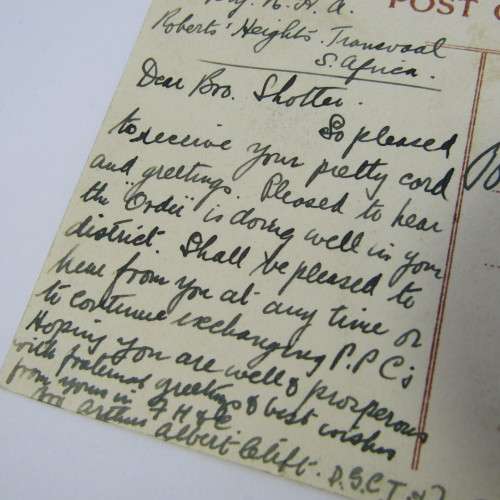 POST
R. H. A.
Roberts' Heights. Transvaal
S. Africa.
Dear Bro. Shotter.
So pleased
to receive your pretty card
and greetings. Pleased to hear
the "Order" is doing well in your
district. Shall be pleased to
hear from you at any time or
to continue exchanging P.P.C's
Hoping you are well & prosperous
with fraternal greetings & best wishes
from yours in F H & C
Bro Arthur Albert Clift. D.S.C.T.